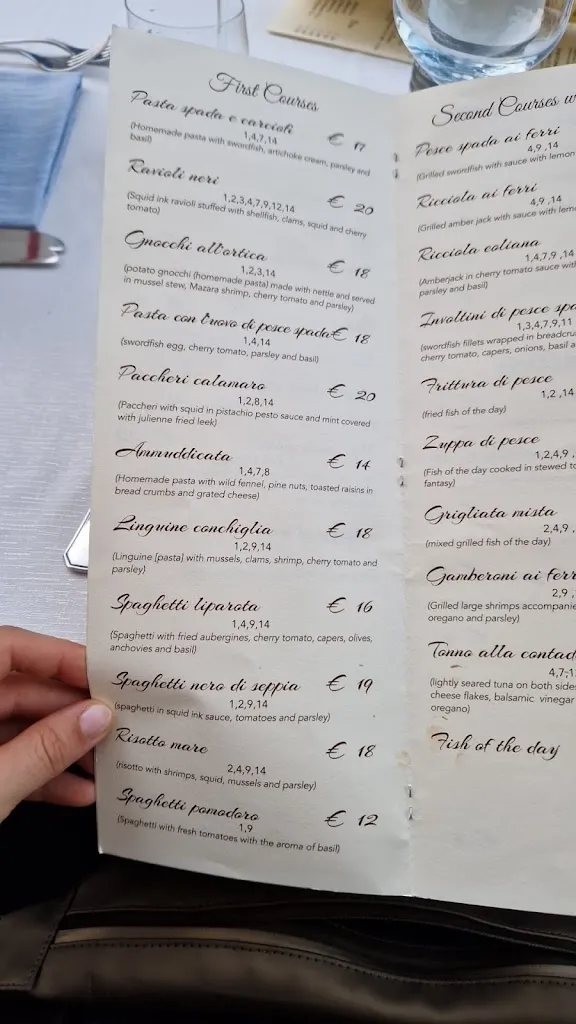 First Courses
Pasta spada e carciofi € 17
1,4,7,14
(Homemade pasta with swordfish, artichoke cream, parsley and
basil)
Ravioli neri € 20
1,2,3,4,7,9,12,14
(Squid ink ravioli stuffed with shellfish, clams, squid and cherry
tomato)
Gnocchi all'ortica € 18
1,2,3,14
(potato gnocchi (homemade pasta) made with nettle and served
in mussel stew, Mazara shrimp, cherry tomato and parsley)
Pasta con l'uovo di pesce spada € 18
1,4,14
(swordfish egg, cherry tomato, parsley and basil)
Paccheri calamaro € 20
1,2,8,14
(Paccheri with squid in pistachio pesto sauce and mint covered
with julienne fried leek)
Ammuddicata € 14
1,4,7,8
(Homemade pasta with wild fennel, pine nuts, toasted raisins in
bread crumbs and grated cheese)
Linguine conchiglia € 18
1,2,9,14
(Linguine [pasta] with mussels, clams, shrimp, cherry tomato and
parsley)
Spaghetti liparota € 16
1,4,9,14
(Spaghetti with fried aubergines, cherry tomato, capers, olives,
anchovies and basil)
Spaghetti nero di seppia € 19
1,2,9,14
(spaghetti in squid ink sauce, tomatoes and parsley)
Risotto mare € 18
2,4,9,14
(risotto with shrimps, squid, mussels and parsley)
Spaghetti pomodoro € 12
1,9
(Spaghetti with fresh tomatoes with the aroma of basil)
Second Courses w
Pesce spada ai ferri
4,9 ,14
(Grilled swordfish with sauce with lemon
Ricciola ai ferri
4,9 ,14
(Grilled amber jack with sauce with lem
Ricciola eoliana
1,4,7,9 ,14
(Amberjack in cherry tomato sauce with
parsley and basil)
Involtini di pesce spa
1,3,4,7,9,11
(swordfish fillets wrapped in breadcru
cherry tomato, capers, onions, basil a
Frittura di pesce
1,2 ,14
(fried fish of the day)
Zuppa di pesce
1,2,4,9 ,
(Fish of the day cooked in stewed to
fantasy)
Grigliata mista
2,4,9 ,
(mixed grilled fish of the day)
Gamberoni ai ferr
2,9 ,
(Grilled large shrimps accompanie
oregano and parsley)
Tonno alla contad
4,7,1
(lightly seared tuna on both side
cheese flakes, balsamic vinegar
oregano)
Fish of the day